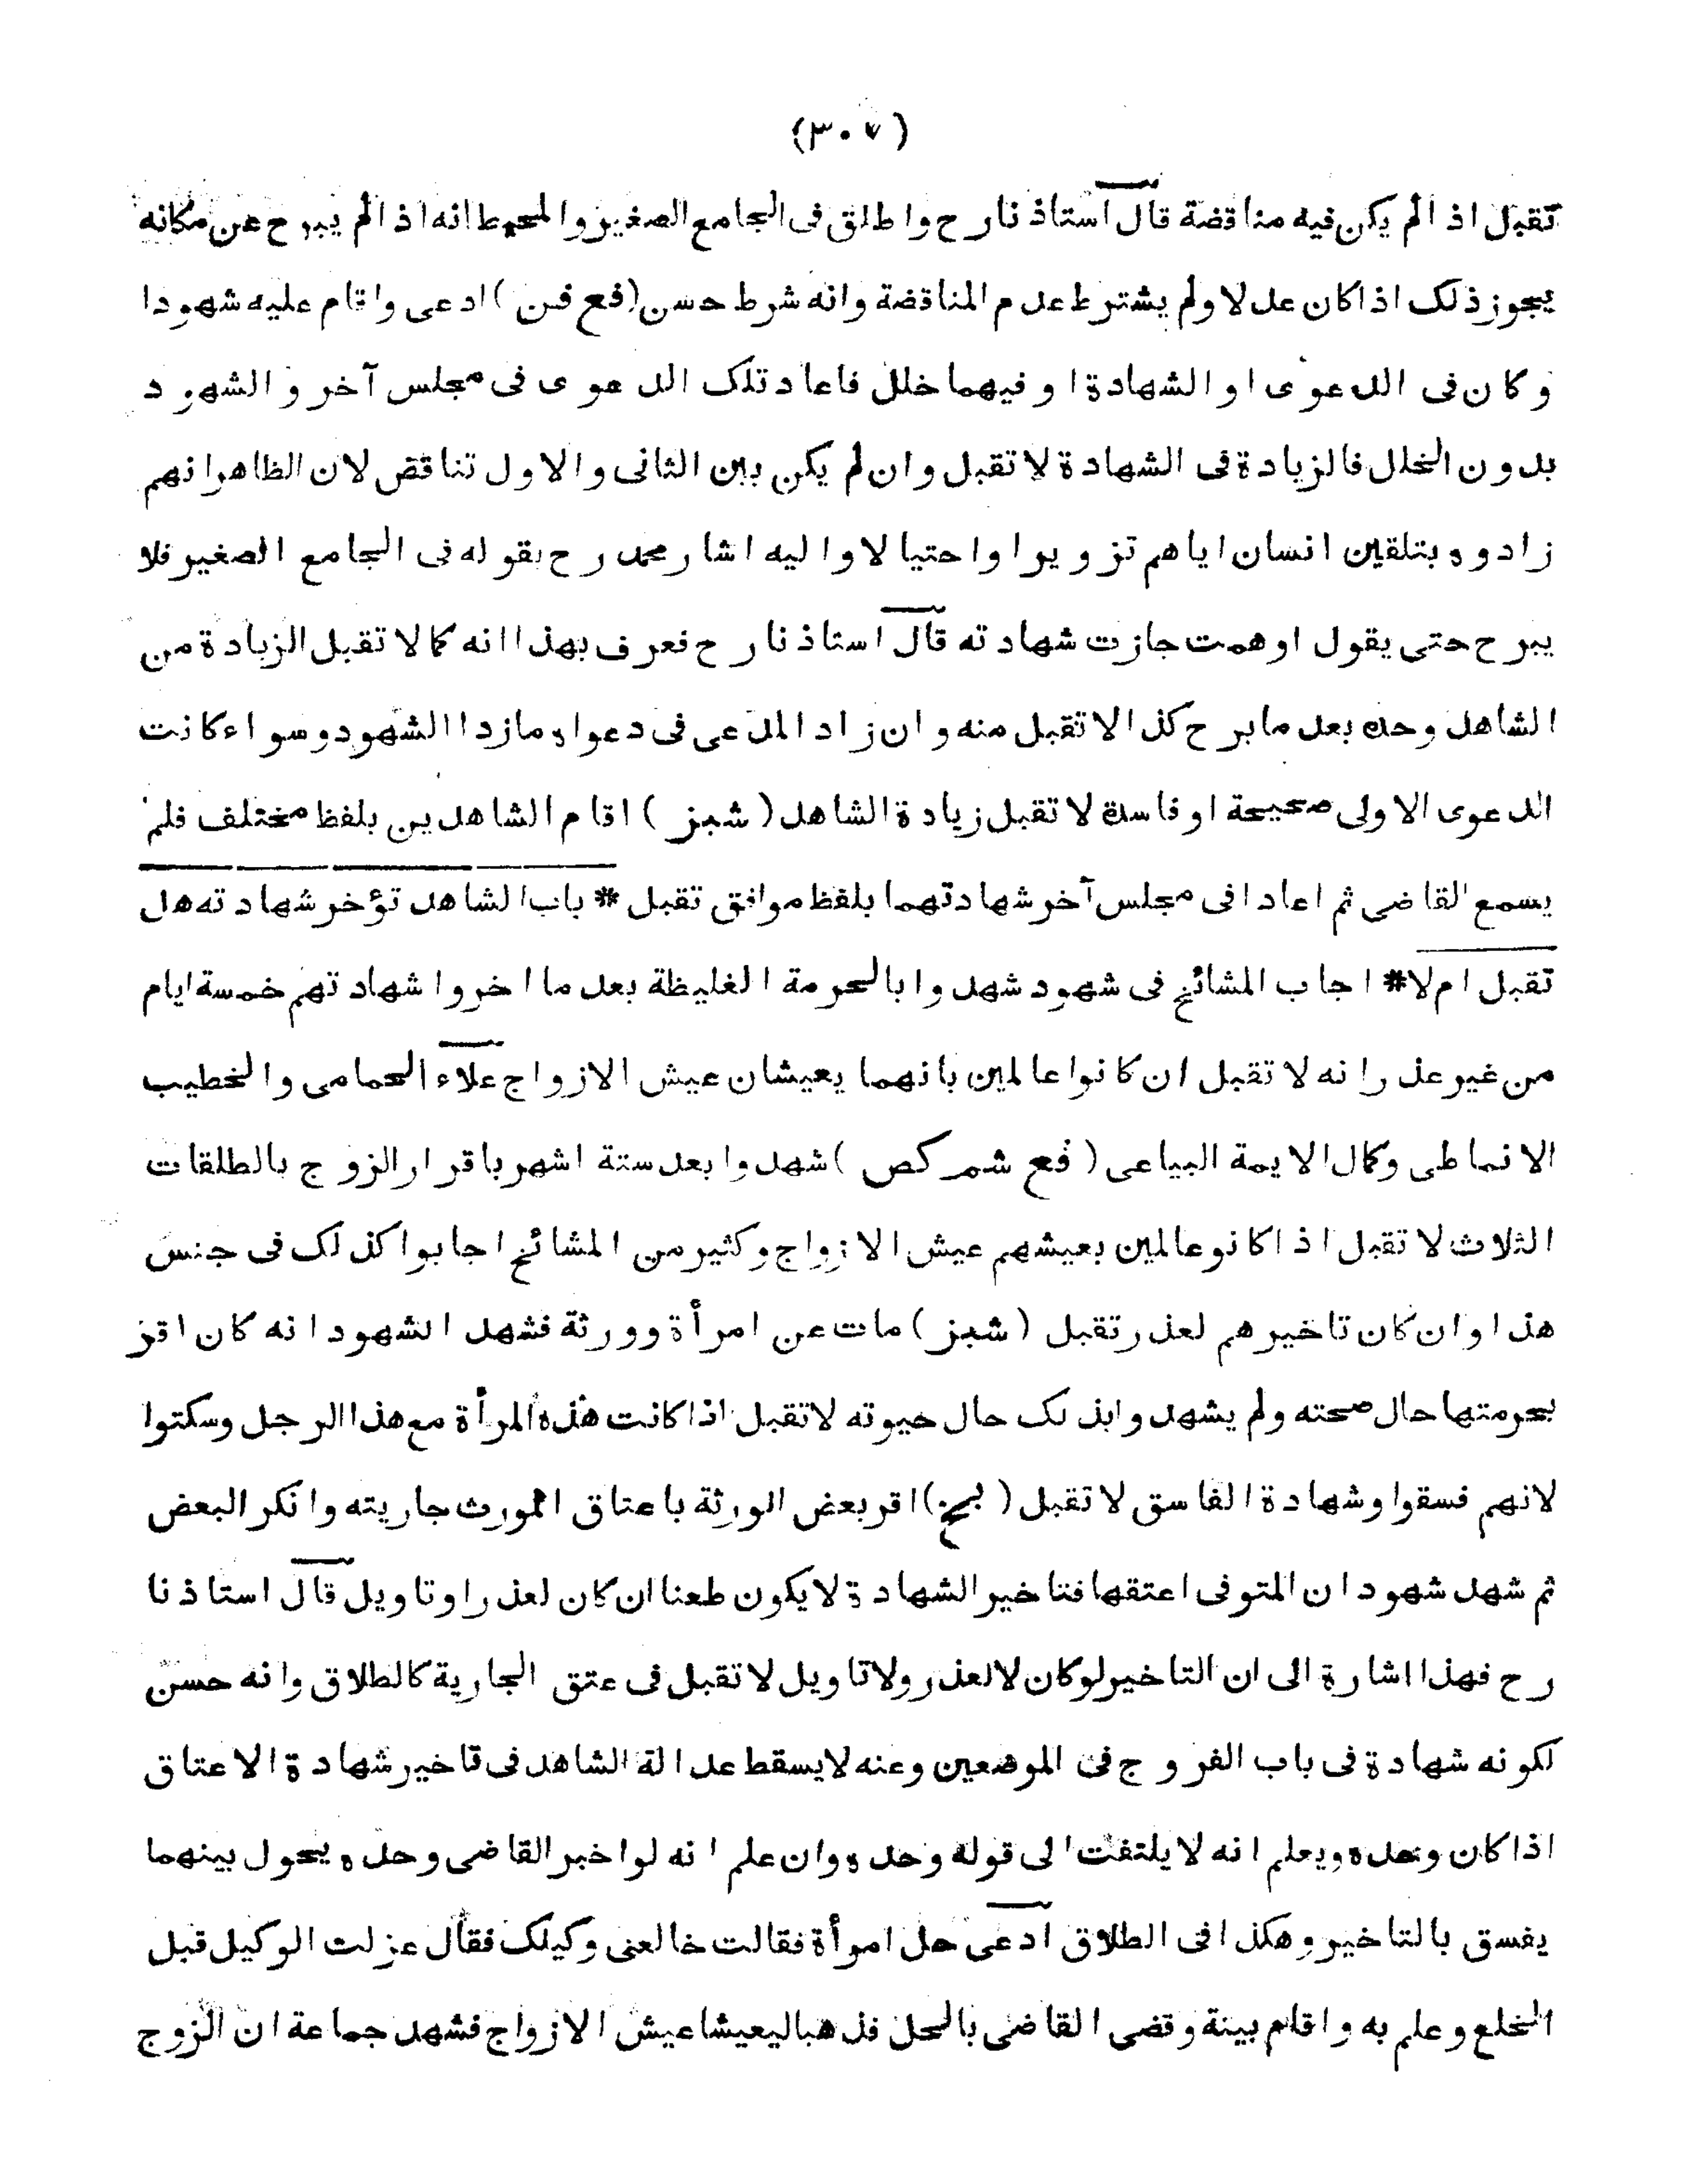 (٣٠٧)
تقبل اذا لم يكن فيه مناقضة قال استاذنا رح واطلق فى الجامع الصغير والمحيط انه اذا لم يبرح عن مكانه
يجوز ذلك اذا كان عدلا ولم يشترط عدم المناقضة وانه شرط حسن (فع فن) ادعى واقام عليه شهودا
وكان فى الدعوى او الشهادة او فيهما خلل فاعاد تلك الدعوى فى مجلس آخر والشهود
بدون الخلل فالزيادة فى الشهادة لا تقبل وان لم يكن بين الثانى والاول تناقض لان الظاهر انهم
زادوه بتلقين انسان اياهم تزويرا واحتيالا واليه اشار محمد رح بقوله فى الجامع الصغير فلا
يبرح حتى يقول اوهمت جازت شهادته قال استاذنا رح فعرف بهذا انه كما لا تقبل الزيادة من
الشاهد وحده بعد ما برح كذا لا تقبل منه وان زاد المدعى فى دعواه ما زدا الشهود وسواء كانت
الدعوى الاولى صحيحة او فاسدة لا تقبل زيادة الشاهد (شبز) اقام الشاهدين بلفظ مختلف فلم
يسمع القاضى ثم اعادا فى مجلس آخر شهادتهما بلفظ موافق تقبل * باب الشاهد تؤخر شهادته هل
تقبل ام لا * اجاب المشائخ فى شهود شهدوا بالحرمة الغليظة بعد ما اخروا شهادتهم خمسة ايام
من غير عذر انه لا تقبل ان كانوا عالمين بانهما يعيشان عيش الازواج علاء الحمامى والخطيب
الانماطى وكمال الايمة البياعى (فع شم كص) شهدوا بعد ستة اشهر باقرار الزوج بالطلقات
الثلاث لا تقبل اذا كانو عالمين بعيشهم عيش الازواج وكثير من المشائخ اجابوا كذلك فى جنس
هذا وان كان تاخيرهم لعذر تقبل (شبز) مات عن امرأة وورثة فشهد الشهود انه كان اقر
بحرمتها حال صحته ولم يشهدوا بذلك حال حيوته لا تقبل اذا كانت هذه المرأة مع هذا الرجل وسكتوا
لانهم فسقوا وشهادة الفاسق لا تقبل (بخ) اقر بعض الورثة باعتاق المورث جاريته وانكر البعض
ثم شهد شهود ان المتوفى اعتقها فتاخير الشهادة لا يكون طعنا ان كان لعذر او تاويل قال استاذنا
رح فهذا اشارة الى ان التاخير لو كان لا لعذر ولا تاويل لا تقبل فى عتق الجارية كالطلاق وانه حسن
لكونه شهادة فى باب الفروج فى الموضعين وعنه لا يسقط عدالة الشاهد فى تاخير شهادة الاعتاق
اذا كان وحده ويعلم انه لا يلتفت الى قوله وحده وان علم انه لو اخبر القاضى وحده يحول بينهما
يفسق بالتاخير وهكذا فى الطلاق ادعى حل امرأة فقالت خالعنى وكيلك فقال عزلت الوكيل قبل
الخلع وعلم به واقام بينة وقضى القاضى بالحل فذهبا ليعيشا عيش الازواج فشهد جماعة ان الزوج